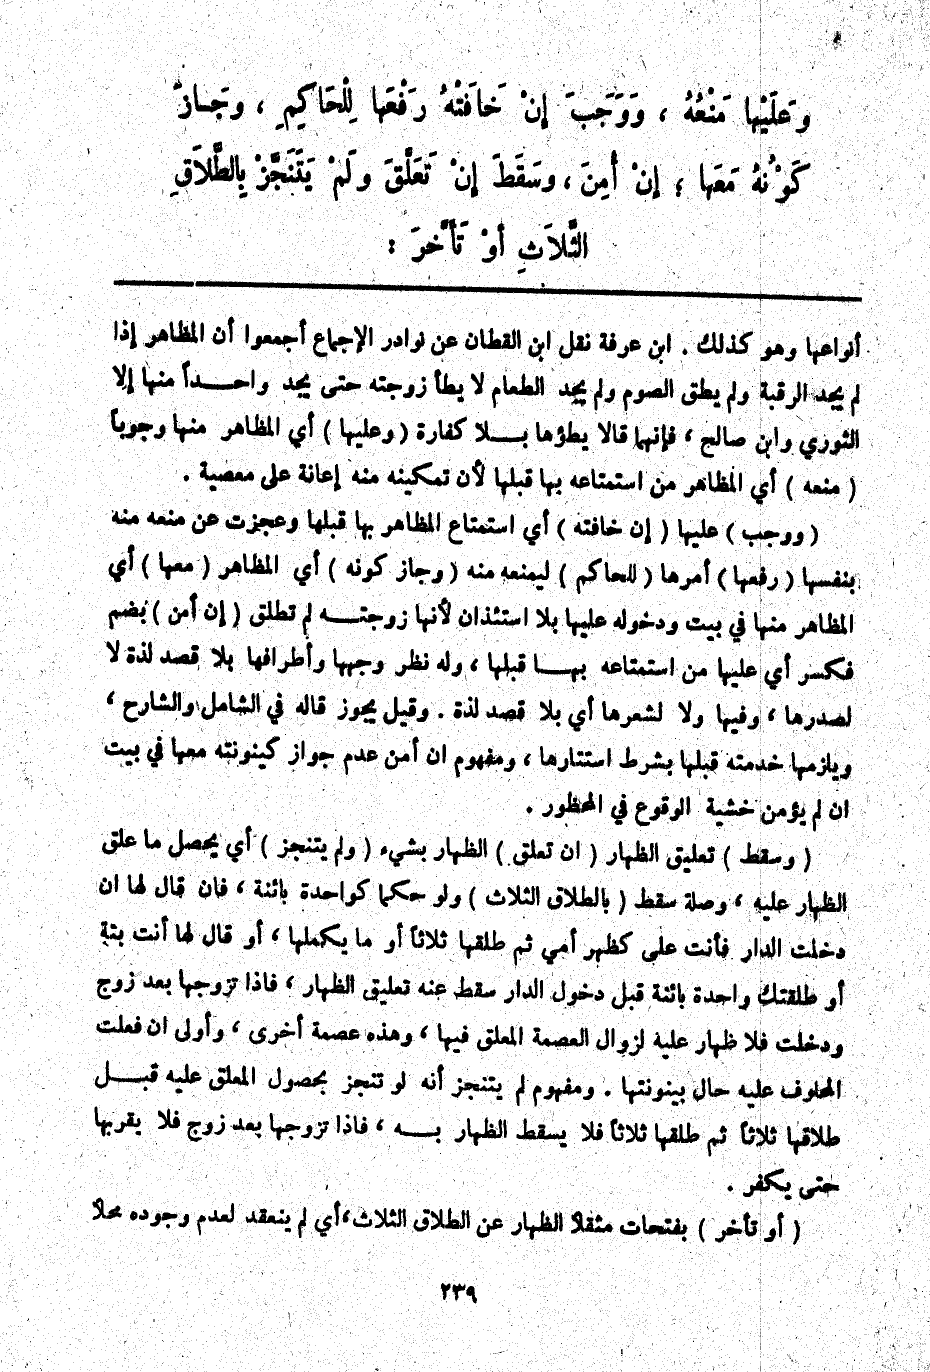 وَعَلَيْهَا مَنْعُهُ ، وَوَجَبَ إِنْ خَافَتْهُ رَفْعُهَا لِلْحَاكِمِ ، وَجَازَ
كَوْنُهُ مَعَهَا ؛ إِنْ أُمِنَ ، وَسَقَطَ إِنْ تَعَلَّقَ وَلَمْ يَتَنَجَّزْ بِالطَّلَاقِ
الثَّلَاثِ أَوْ تَأَخَّرَ :
أنواعها وهو كذلك . ابن عرفة نقل ابن القطان عن نوادر الإجماع أجمعوا أن المظاهر إذا
لم يجد الرقبة ولم يطق الصوم ولم يجد الطعام لا يطأ زوجته حتى يجد واحــداً منها إلا
الثوري وابن صالح ، فإنهما قالا يطؤها بــلا كفارة ( وعليها ) أي المظاهر منها وجوباً
( منعه ) أي المظاهر من استمتاعه بها قبلها لأن تمكينه منه إعانة على معصية .
( ووجب ) عليها ( إن خافته ) أي استمتاع المظاهر بها قبلها وعجزت عن منعه منه
بنفسها ( رفعها ) أمرها ( للحاكم ) ليمنعه منه ( وجاز كونه ) أي المظاهر ( معها ) أي
المظاهر منها في بيت ودخوله عليها بلا استئذان لأنها زوجتــه لم تطلق ( إن أمن ) بضم
فكسر أي عليها من استمتاعه بهــا قبلها ، وله نظر وجهها وأطرافها بلا قصد لذة لا
لصدرها ، وفيها ولا لشعرها أي بلا قصد لذة . وقيل يجوز قاله في الشامل والشارح ،
ويلزمها خدمته قبلها بشرط استتارها ، ومفهوم ان أمن عدم جواز كينونته معها في بيت
ان لم يؤمن خشية الوقوع في المحظور .
( وسقط ) تعليق الظهار ( ان تعلق ) الظهار بشيء ( ولم يتنجز ) أي يحصل ما علق
الظهار عليه ، وصلة سقط ( بالطلاق الثلاث ) ولو حكما كواحدة بائنة ، فان قال لها ان
دخلت الدار فأنت على كظهر أمي ثم طلقها ثلاثاً أو ما يكملها ، أو قال لها أنت بتة
أو طلقتك واحدة بائنة قبل دخول الدار سقط عنه تعليق الظهار ، فاذا تزوجها بعد زوج
ودخلت فلا ظهار عليه لزوال العصمة المعلق فيها ، وهذه عصمة أخرى ، وأولى ان فعلت
المحلوف عليه حال بينونتها . ومفهوم لم يتنجز أنه لو تنجز بحصول المعلق عليه قبــل
طلاقها ثلاثاً ثم طلقها ثلاثاً فلا يسقط الظهار بــه ، فاذا تزوجها بعد زوج فلا يقربها
حتى يكفر .
( أو تأخر ) بفتحات مثقلاً الظهار عن الطلاق الثلاث ، أي لم ينعقد لعدم وجوده محلاً
٢٣٩